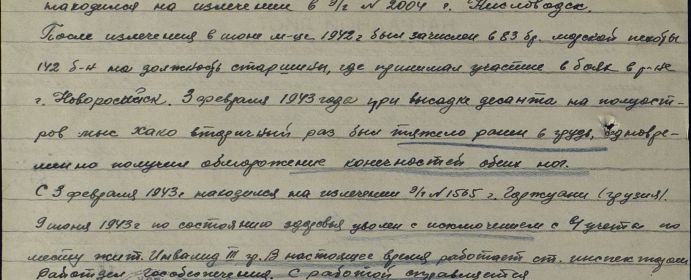 находился на излечении в э/г N 2004 г. Кисловодск.
После излечения в июне м-це 1942 г был зачислен в 83 бр. морской пехоты
142 б-н на должность старшины, где принимал участие в боях в р-не
г. Новороссийск. 3 февраля 1943 года при высадке десанта на полуост-
ров мыс Хако вторичный раз был тяжело ранен в грудь, одновре-
менно получил обморожение конечностей обеих ног.
С 3 февраля 1943 г находился на излечении э/г N 1565 г. (грузия).
9 июня 1943 г по состоянию здоровья уволен с исключением с в/учета по
месту жит. Инвалид III гр. В настоящее время работает ст. инспектором
С работой справляется